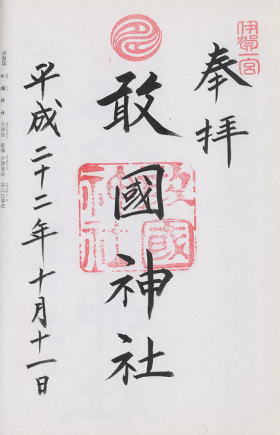 伊賀一宮
奉拝
敢國神社
敢國
神社
平成二十二年十月十一日